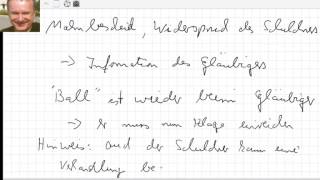 Mahnbescheid, Widerspruch des Schuldners
→ Information des Gläubigers
"Ball" ist wieder beim Gläubiger
→ Er muss nun Klage einreichen
Hinweis: auch der Schuldner kann eine
Verhandlung be-